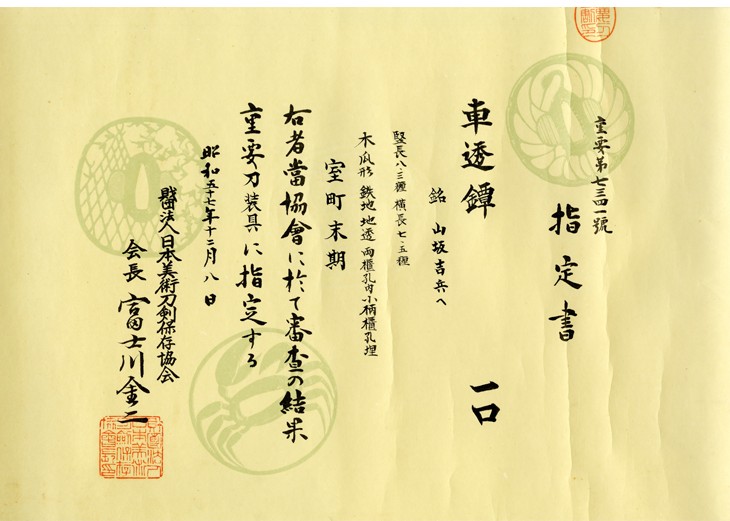 重要第七三四一號
指定書
車透鐔 一口
銘 山坂吉兵ヘ
竪長八・三糎 横長七・五糎
木瓜形 鉄地 地透 両櫃孔内小柄櫃孔埋
室町末期
右者當協會に於て審査の結果
重要刀装具に指定する
昭和五十七年十二月八日
財団法人日本美術刀剣保存協会
会長 富士川金二